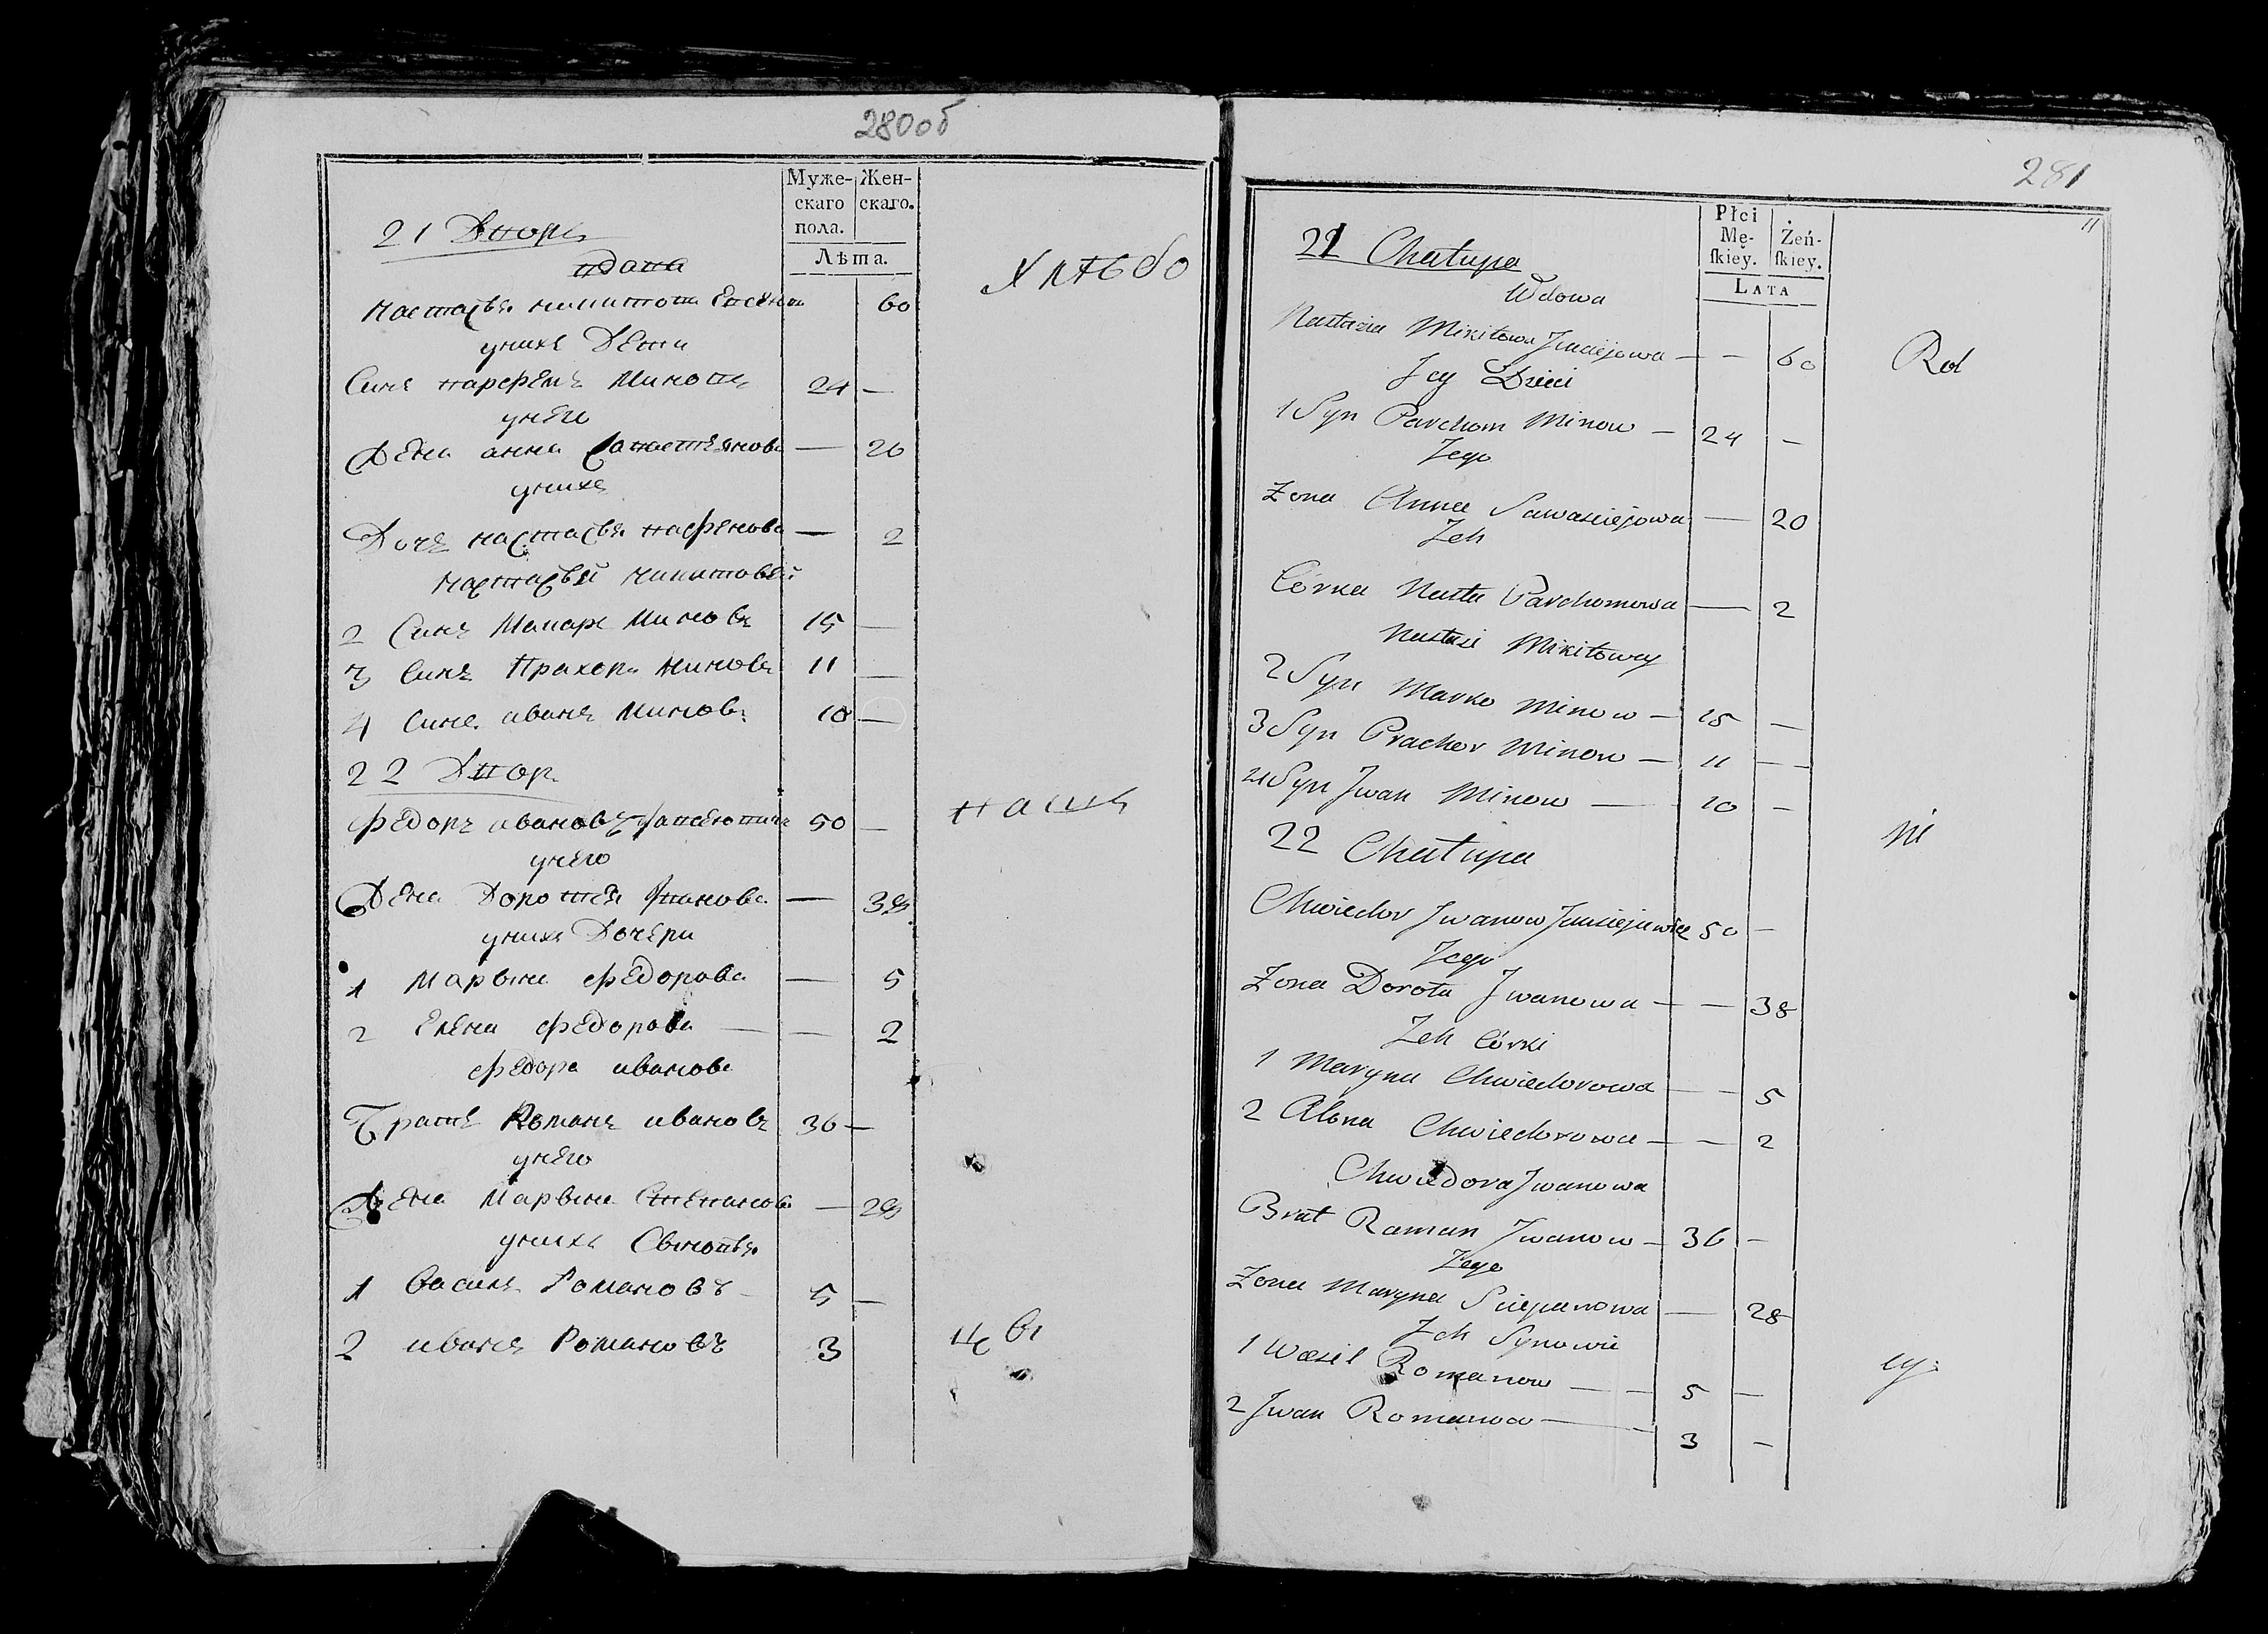 280об
Муже-
скаго
пола.
Жен-
скаго.
Лѣта.
21 Дворъ
вдова
Настасья Никитова 60
у нихъ Дети
Синъ Парфенъ Миновъ 24 —
у него
Жена Анна — 20
у нихъ
Дочь Настасья Пафенова — 2
Настасьи Никитовой
2 Синъ Макаръ Миновъ 15 —
3 Синъ Прахоръ Миновъ 11 —
4 Синъ Иванъ Миновъ 10 —
22 Дворъ
Федоръ Ивановъ 50 —
у него
Жена Доротея Иванова — 38
у нихъ Дочери
1 Марына Федорова — 5
2 Елена Федорова — — 2
Федора Иванова
Братъ Романъ Ивановъ 36 —
у него
Жена Марына Степанова — 28
у нихъ Сыновья
1 Василь Романовъ 5 —
2 Иванъ Романовъ 3
Хлѣбо
паш
цы
281
11
Płci
Mę-
ſkiey.
Żeń-
ſkiey.
LATA
21 Chałupa
Wdowa
Nastazia Mikitowa — — 60
Jey Dzieci
1 Syn Parchom Minow — 24 —
Jego
Zona Anna Sawasciejowa — 20
Jch
Córka Nasta Parchomowa — 2
Nastazi Mikitowey
2 Syn Marko Minow — 15 —
3 Syn Prachor Minow — 11 —
4 Syn Jwan Minow — 10 —
22 Chałupa
Chwiedor Jwanow 50 —
Jego
Zona Dorota Jwanowa — — 38
Jch Córki
1 Maryna Chwiedorowa — — 5
2 Alona Chwiedorowa — — 2
Chwiedora Jwanowa
Brat Raman Jwanow — 36 —
Jego
Zona Maryna Sciepanowa — 28
Jch Synowie
1 Wasil Romanow — — 5 —
2 Jwan Romanow — 3 —
Rol
ni
cy